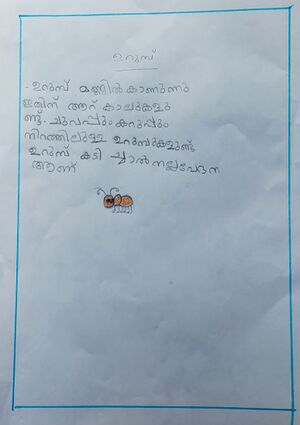 ഉറുമ്പ്
· ഉറുമ്പ് മണ്ണിൽ കാണുന്നു
ഇതിന് ആറ് കാലുകളു
ണ്ട്. ചുവപ്പും കറുപ്പും
നിറത്തിലുള്ള ഉറുമ്പുകളുണ്ട്
ഉറുമ്പ് കടി ച്ചാൽ നല്ലവേദന
ആണ്